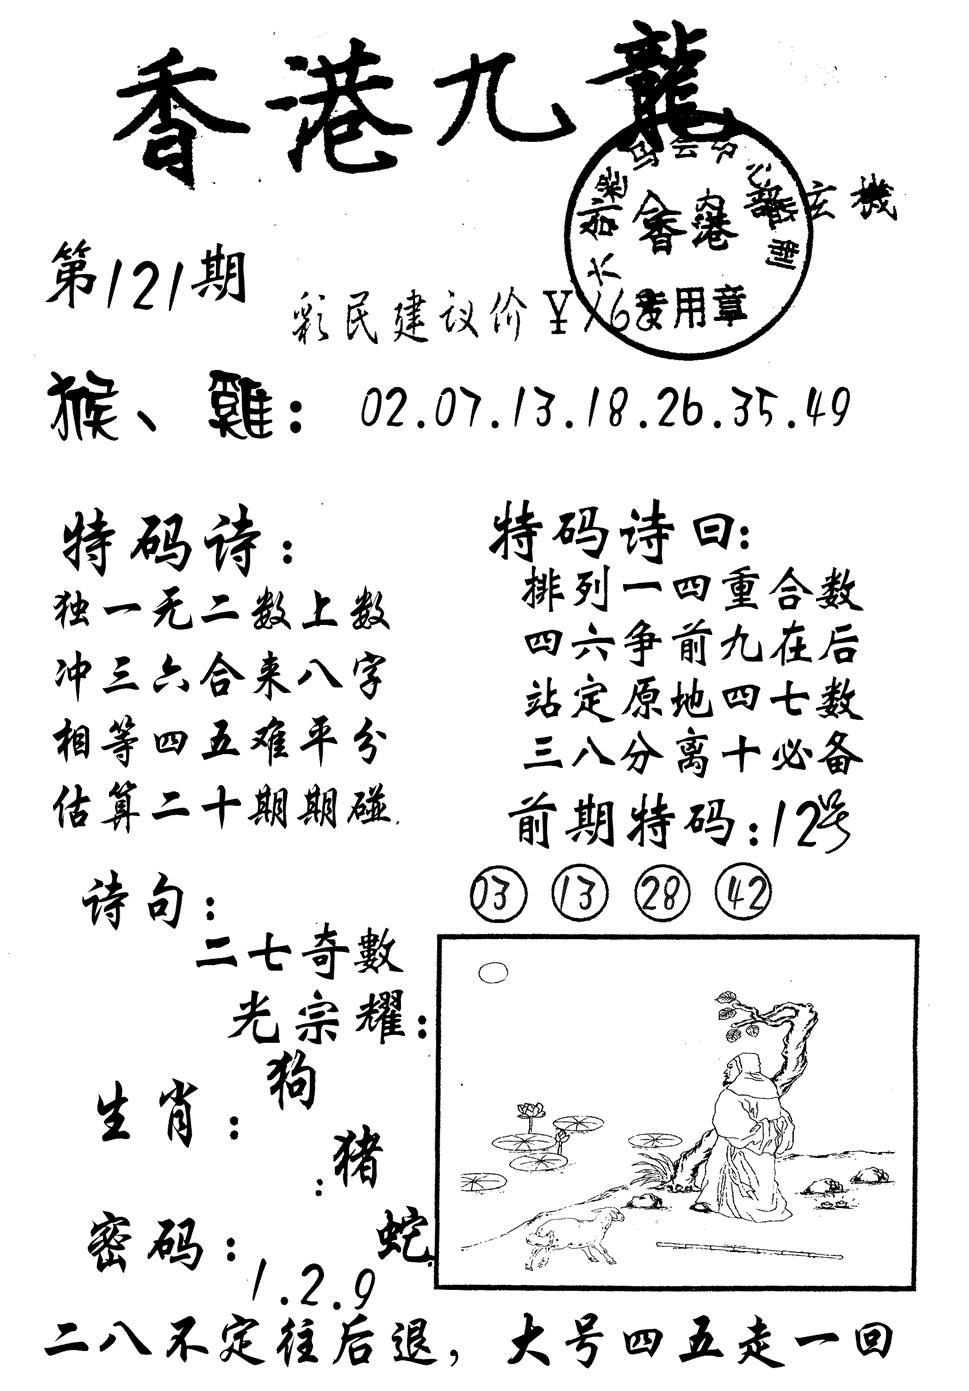 香港九龍
玄機
香港
专用章
第121期
彩民建议价￥168
猴、雞：02.07.13.18.26.35.49
特码诗：
独一无二数上数
冲三六合来八字
相等四五难平分
估算二十期期碰.
特码诗曰：
排列一四重合数
四六争前九在后
站定原地四七数
三八分离十必备
前期特码：12号
03 13 28 42
诗句：
二七奇數
光宗耀：
生肖：
狗
：猪
蛇
密码：
1.2.9
二八不定往后退，大号四五走一回